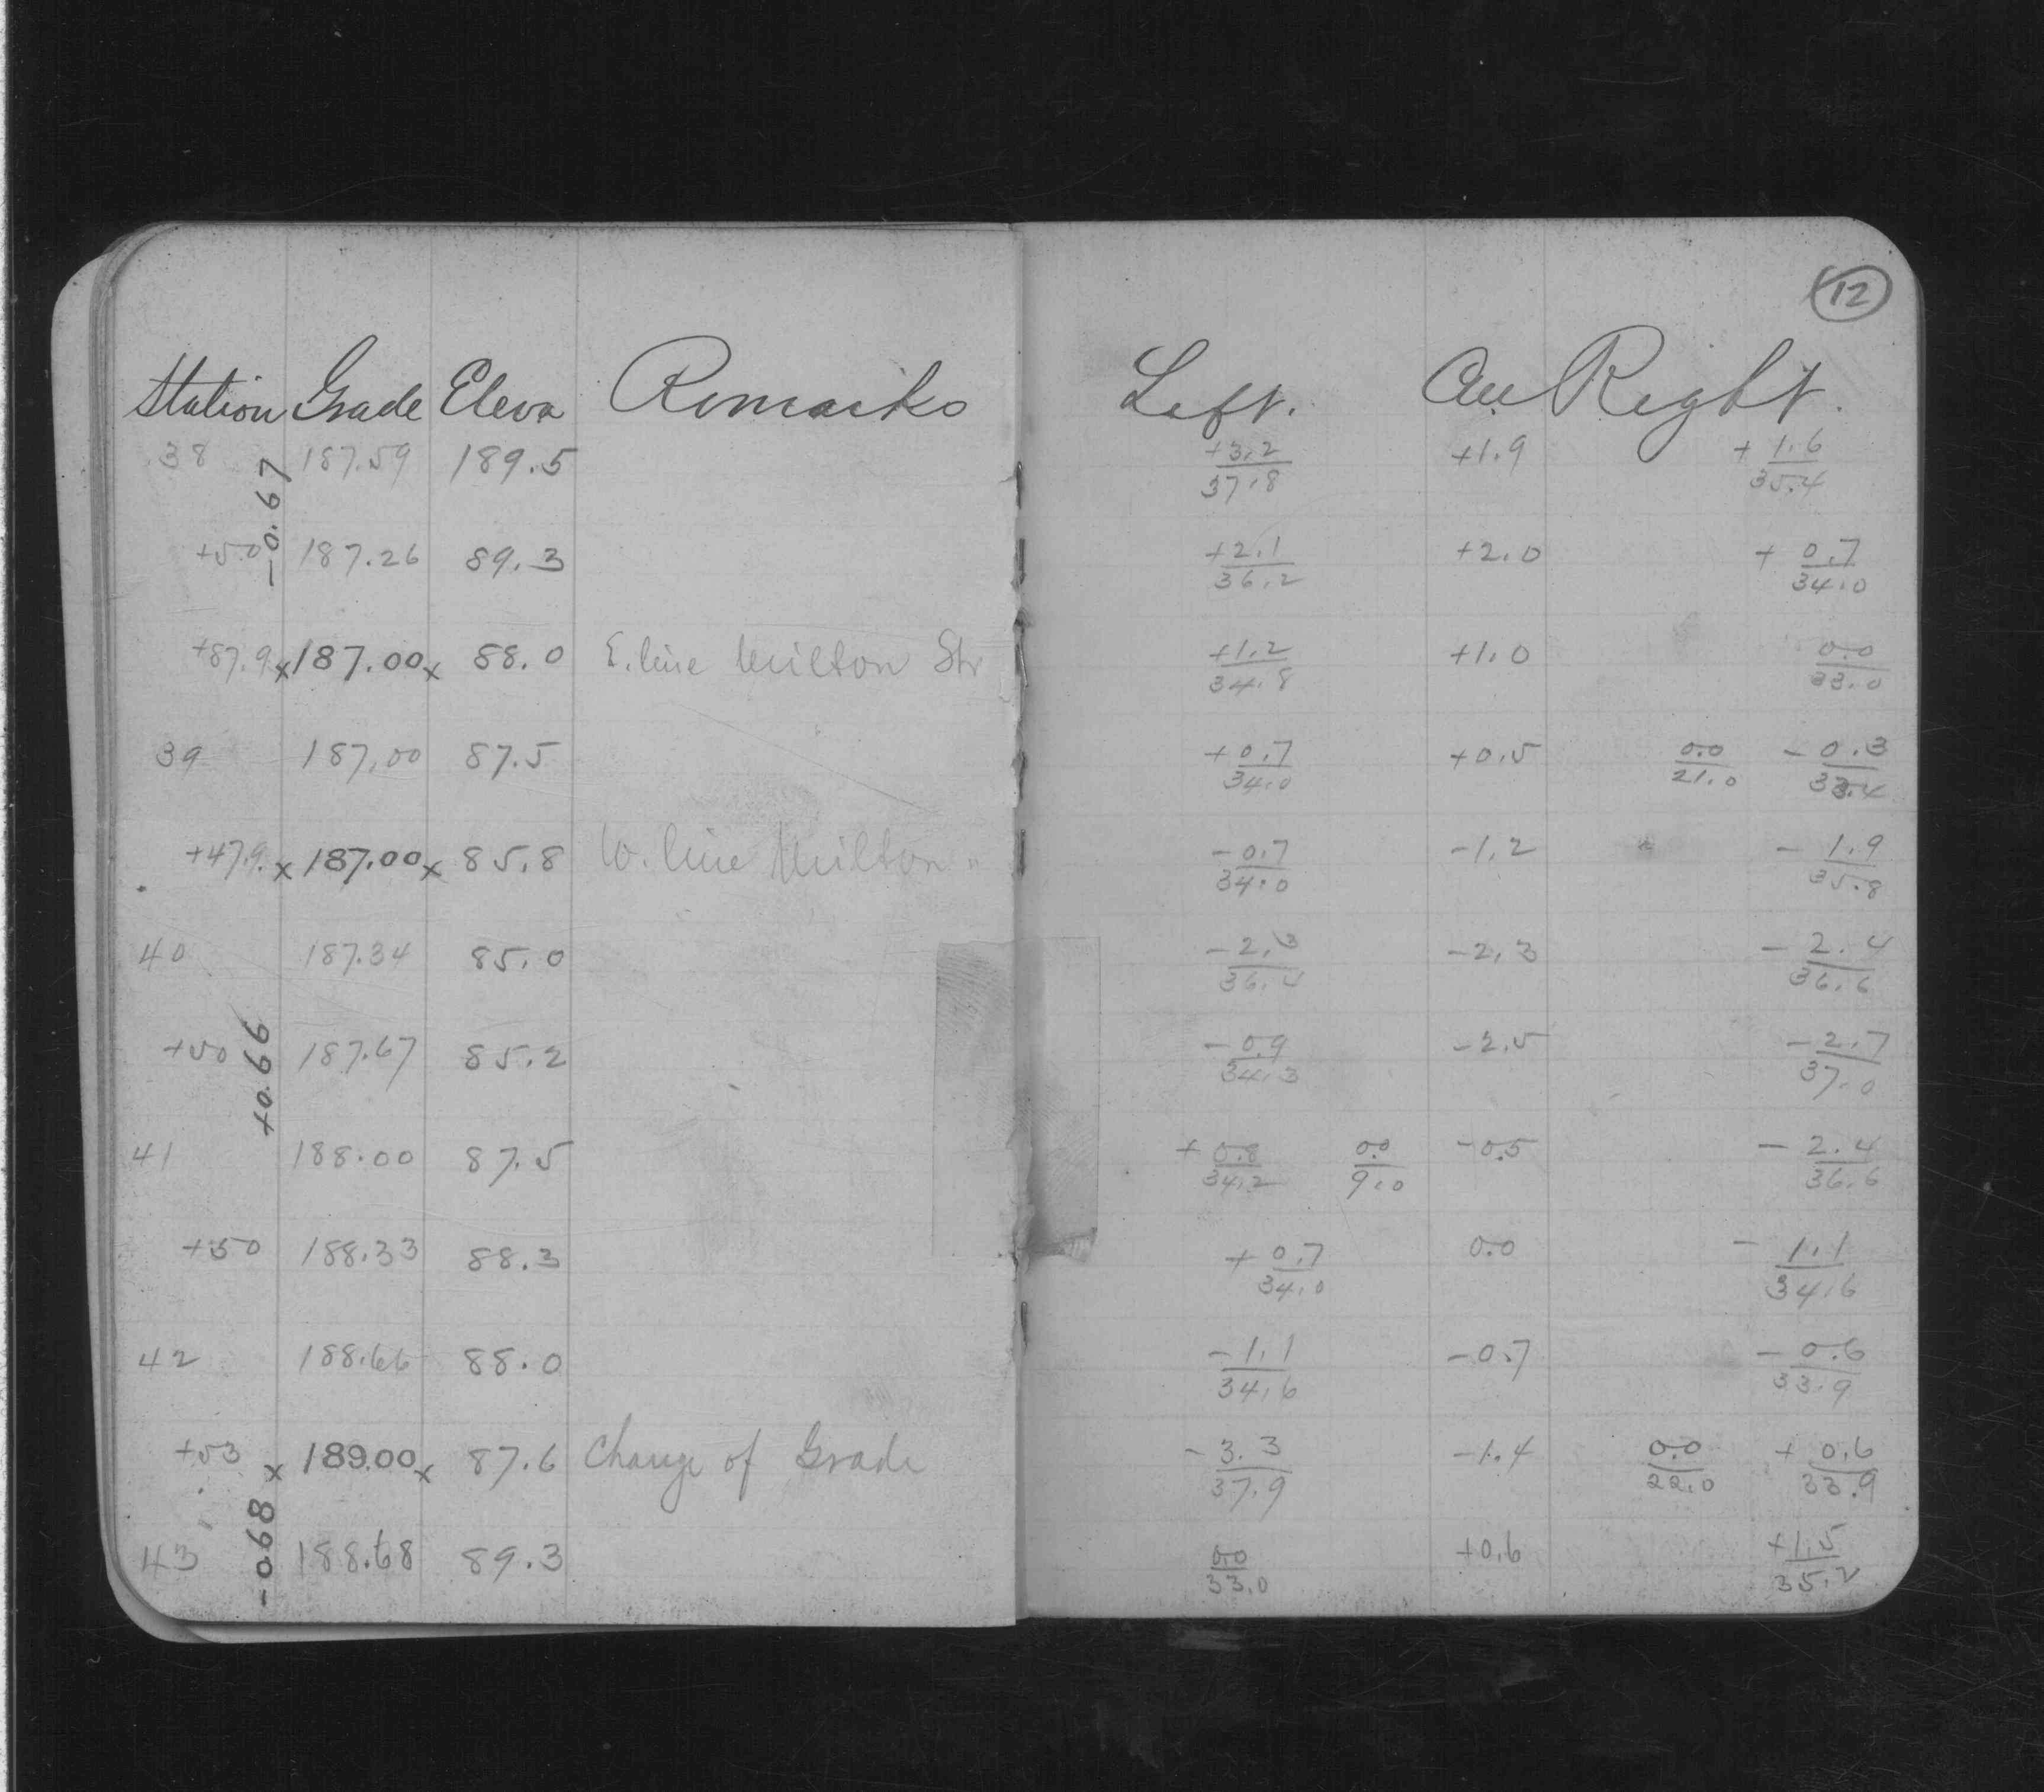 12
Station Grade Eleva Remarks Left. Cen. Right.
38 187.59 189.5 +3.2/37.8 +1.9 +1.6/35.4
-0.67
+50 187.26 89.3 +2.1/36.2 +2.0 +0.7/34.0
+87.9 x 187.00 x 88.0 E. line Milton Str +1.2/34.8 +1.0 0.0/33.0
39 187.00 87.5 +0.7/34.0 +0.5 0.0/21.0 -0.3/33.4
+47.9 x 187.00 x 85.8 W. line Milton " -0.7/34.0 -1.2 -1.9/35.8
40 187.34 85.0 -2.3/36.4 -2.3 -2.4/36.6
+50 187.67 85.2 -0.9/34.3 -2.5 -2.7/37.0
+0.66
41 188.00 87.5 +0.8/34.2 0.0/9.0 -0.5 -2.4/36.6
+50 188.33 88.3 +0.7/34.0 0.0 -1.1/34.6
42 188.66 88.0 -1.1/34.6 -0.7 -0.6/33.9
+53 x 189.00 x 87.6 Change of Grade -3.3/37.9 -1.4 0.0/22.0 +0.6/33.9
-0.68
43 188.68 89.3 0.0/33.0 +0.6 +1.5/35.2